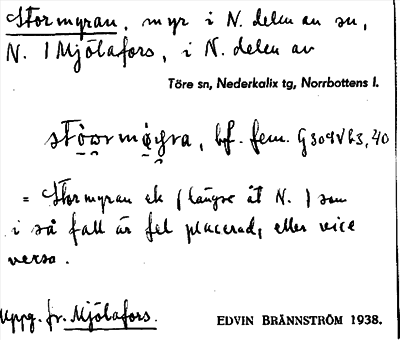 Stormyran, myr i N. delen av sn,
N. / Mjölafors, i N. delen av
Töre sn, Nederkalix tg, Norrbottens l.
bf. fem.
= Stormyran ek (längre åt N.) som
i så fall är fel placerad, eller vice
versa.
Uppg. fr. Mjölafors.
EDVIN BRÄNNSTRÖM 1938.